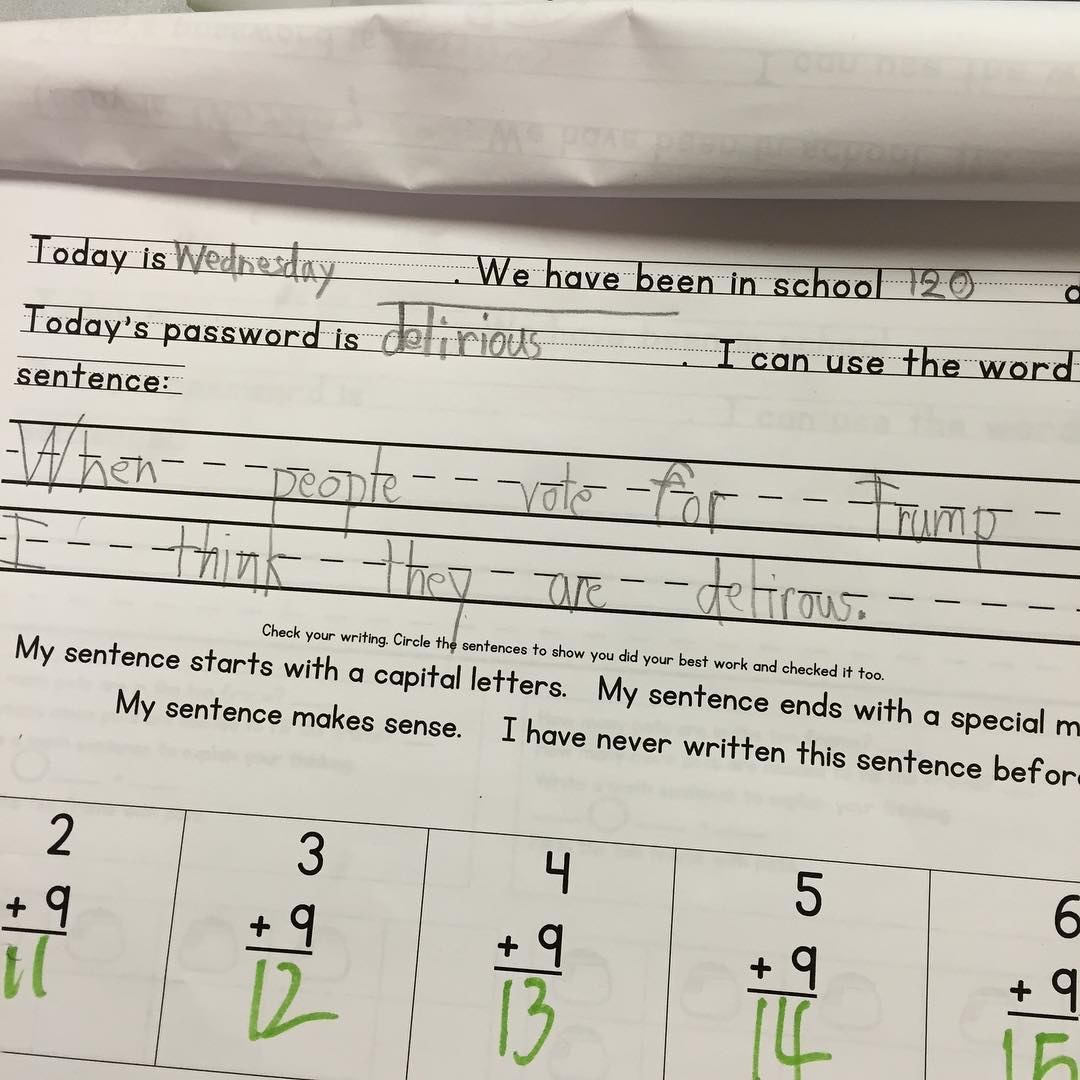 Today is Wednesday . We have been in school 120
Today's password is delirious . I can use the word
sentence:
When people vote for Trump
I think they are delirous.
Check your writing. Circle the sentences to show you did your best work and checked it too.
My sentence starts with a capital letters. My sentence ends with a special m
My sentence makes sense. I have never written this sentence before
2 3 4 5 6
+ 9 + 9 + 9 + 9 + 9
11 12 13 14 15